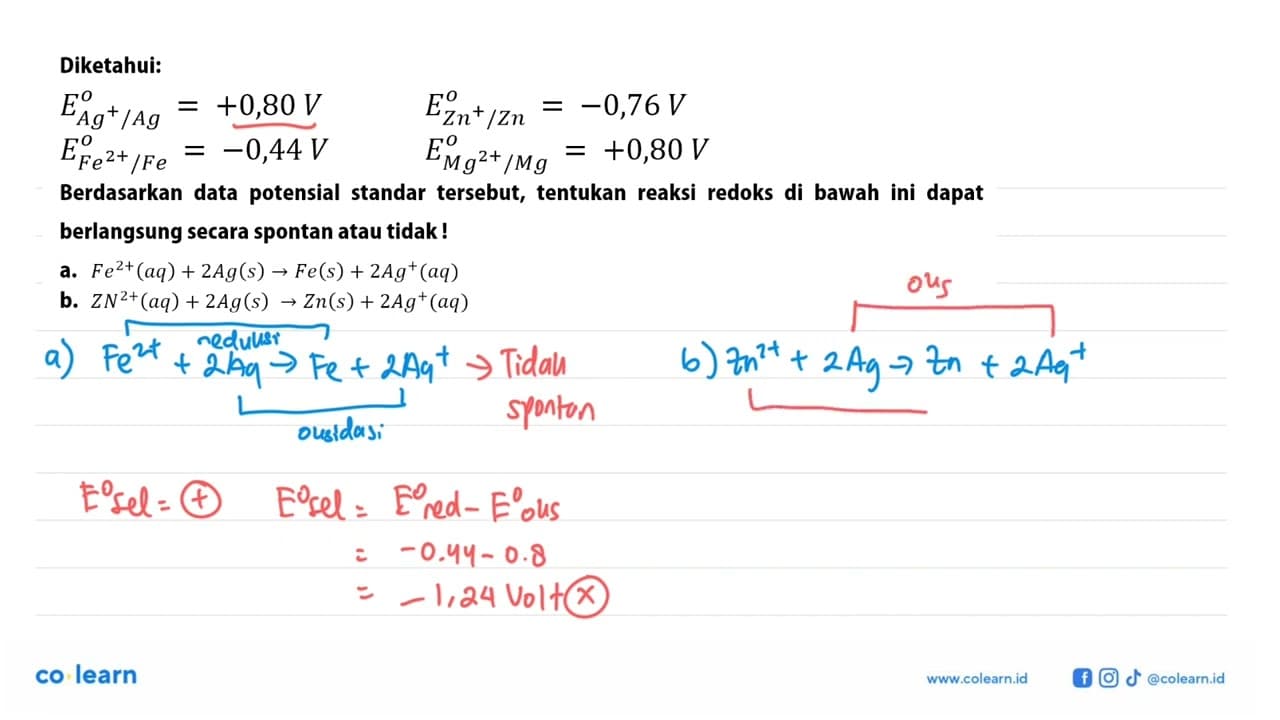 Diketahui:
E°Ag⁺/Ag = +0,80 V E°Zn⁺/Zn = −0,76 V
E°Fe²⁺/Fe = −0,44 V E°Mg²⁺/Mg = +0,80 V
Berdasarkan data potensial standar tersebut, tentukan reaksi redoks di bawah ini dapat
berlangsung secara spontan atau tidak !
a. Fe²⁺(aq) + 2Ag(s) → Fe(s) + 2Ag⁺(aq)
b. ZN²⁺(aq) + 2Ag(s) → Zn(s) + 2Ag⁺(aq)
oks
reduksi
a) Fe²⁺ + 2Ag → Fe + 2Ag⁺ → Tidak
spontan
oksidasi
b) Zn²⁺ + 2Ag → Zn + 2Ag⁺
E°sel = (+) E°sel = E°red − E°oks
= −0.44 − 0.8
= −1,24 Volt (x)
co learn
www.colearn.id
@colearn.id